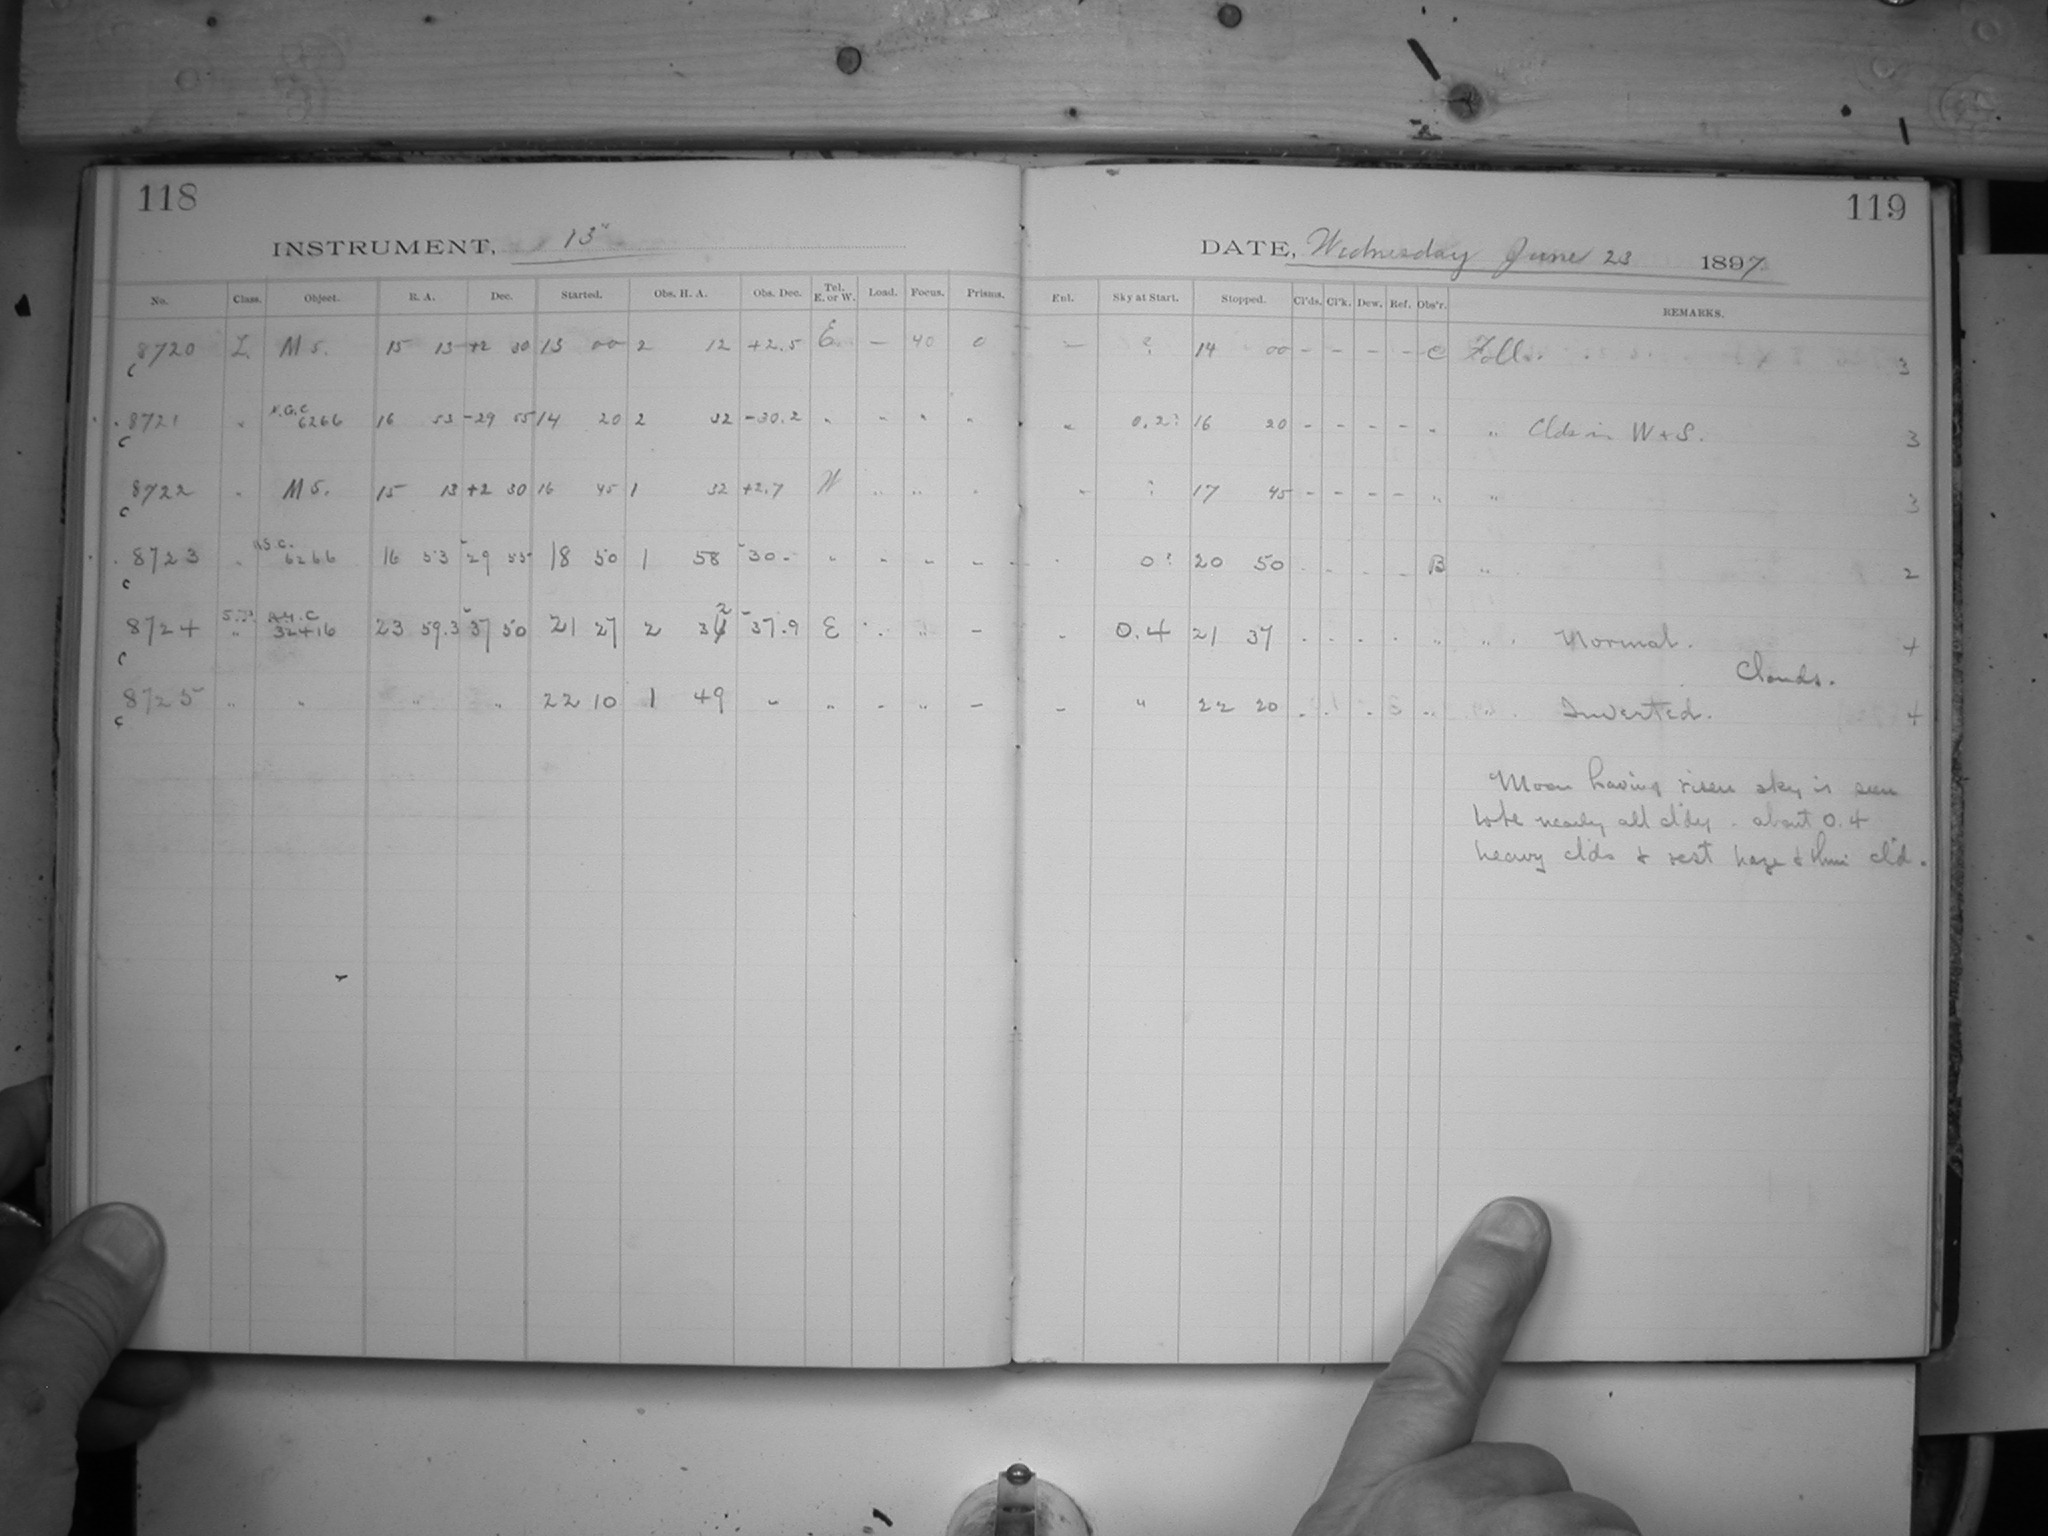 118
INSTRUMENT, 13"
No. Class. Object. R. A. Dec. Started. Obs. H. A. Obs. Dec. Tel. E. or W. Load. Focus. Prisms.
8720 I. M 5. 15 13 +2 30 13 00 2 12 +2.5 E - 40 0
8721 " N.G.C. 6266 16 53 -29 55 14 20 2 32 -30.2 " - " "
8722 " M 5. 15 13 +2 30 16 45 1 32 +2.7 W " " "
8723 " 6266 16 53 -29 55 18 50 1 58 -30 - " - - -
8724 " 32416 23 59.3 -37 50 21 27 2 32 -37.9 E " " -
8725 " " " " 22 10 1 49 " " - " -
119
DATE, Wednesday June 23 1897
Enl. Sky at Start. Stopped. Cl'ds. Cl'k. Dew. Ref. Obs'r. REMARKS.
- ? 14 00 - - - - C Foll. 3
" 0.2? 16 20 - - - - " " Clds in W & S. 3
" ? 17 45 - - - - " " 3
0? 20 50 - - - - B " 2
- 0.4 21 37 - - - - " " Normal. 4
Clouds.
- " 22 20 - - - " " Inverted. 4
Moon having risen sky is seen
to be nearly all cl'dy - about 0.4
heavy cl'ds & rest haze & thin cl'd.